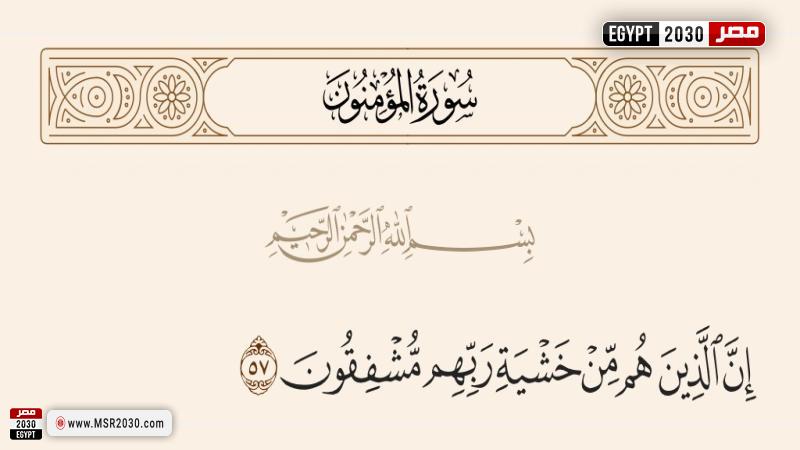 EGYPT 2030 مصر
سُورَةُ المُؤْمِنُونَ
بِسْمِ اللَّهِ الرَّحْمَٰنِ الرَّحِيمِ
إِنَّ ٱلَّذِينَ هُم مِّنْ خَشْيَةِ رَبِّهِم مُّشْفِقُونَ ٥٧
مصر
2030
EGYPT
www.MSR2030.com